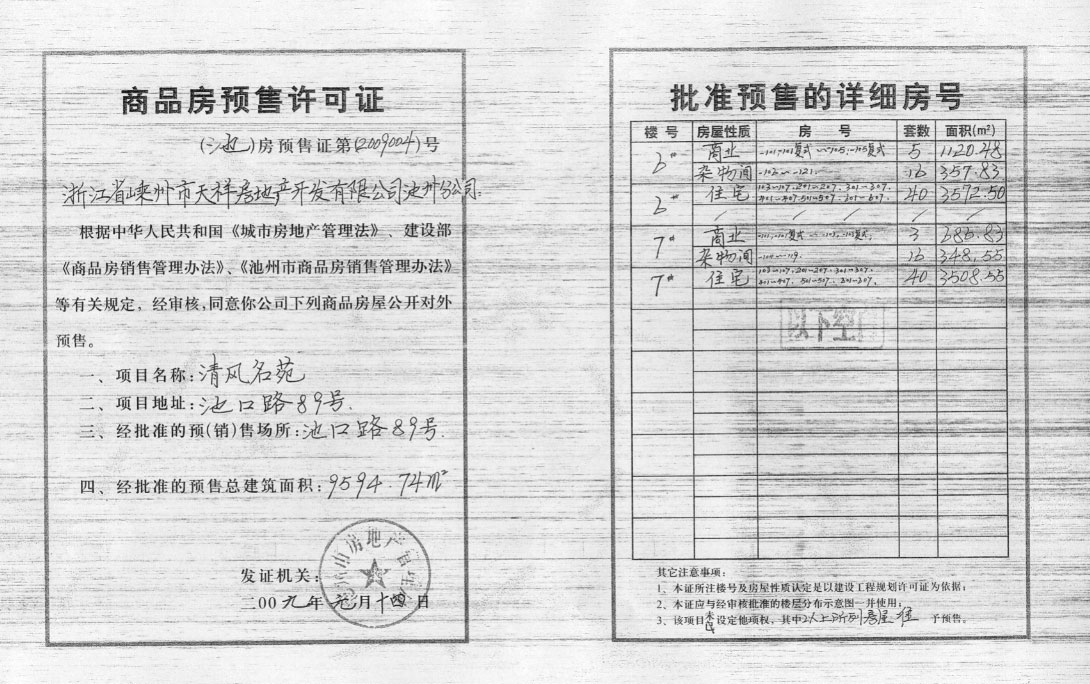 商品房预售许可证
(池)房预售证第(2009004)号
浙江省嵊州市天祥房地产开发有限公司池州分公司.
根据中华人民共和国《城市房地产管理法》、建设部
《商品房销售管理办法》、《池州市商品房销售管理办法》
等有关规定，经审核,同意你公司下列商品房屋公开对外
预售。
一、项目名称:清风名苑
二、项目地址:池口路89号.
三、经批准的预(销)售场所:池口路89号.
四、经批准的预售总建筑面积:9594.74m²
发证机关:
二00九年元月十四日
批准预售的详细房号
楼号 房屋性质 房号 套数 面积(m²)
6# 商业 -101,101复式~-105,-105复式 5 1120.48
杂物间 16 357.83
6# 住宅 103-107,201-207,301-307, 401-407,501-507, 40 3572.50
7# 商业 3 686.83
杂物间 16 348.55
7# 住宅 103-107,201-207,301-307, 401-407,501-507, 40 3508.55
以下空
其它注意事项:
1、本证所注楼号及房屋性质认定是以建设工程规划许可证为依据;
2、本证应与经审核批准的楼层分布示意图一并使用;
3、该项目未设定他项权，其中以上所列房屋准予预售。